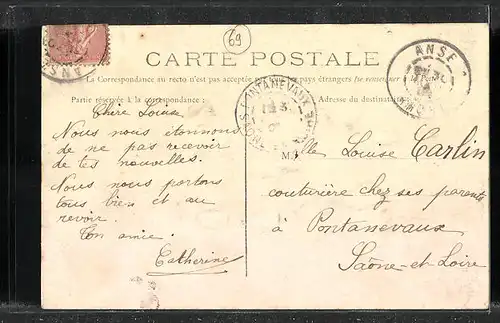 69
ANSE
CARTE POSTALE
La Correspondance au recto n'est pas acceptée par tous les pays étrangers (se renseigner à la Poste)
Partie réservée à la correspondance :
Adresse du destinataire
PONTANEVAUX
Chère Louise
Nous nous étonnons
de ne pas recevoir
de tes nouvelles.
Nous nous portons
tous bien et au
revoir.
Ton amie.
Catherine
Mlle Louise Carlin
couturière chez ses parents
à Pontanevaux
Saône-et-Loire